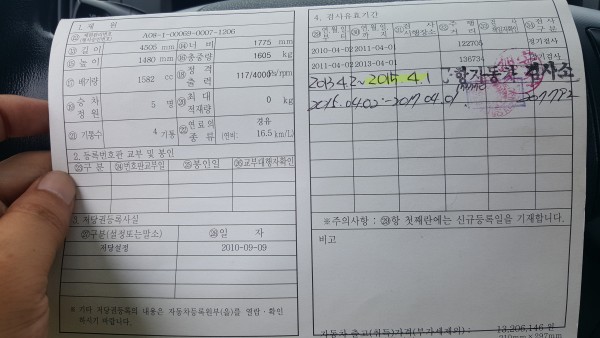 1. 제 원
A08-1-00069-0007-1206
⑬길 이 4505 mm ⑭너 비 1775 mm
⑮높 이 1480 mm ⑯총중량 1605 kg
⑰배기량 1582 cc ⑱정격출력 117/4000Ps/rpm
⑲승차정원 5 명 ⑳최대적재량 0 kg
㉑기통수 4 기통 ㉒연료의종류 경유 (연비: 16.5 km/L)
2. 등록번호판 교부 및 봉인
㉓구 분 ㉔번호판교부일 ㉕봉인일 ㉖교부대행자확인
3. 저당권등록사실
㉗구분(설정또는말소) ㉘일 자
저당설정 2010-09-09
※ 기타 저당권등록의 내용은 자동차등록원부(을)를 열람·확인
하시기 바랍니다.
4. 검사유효기간
㉙연월일부터 ㉚연월일까지 ㉛검사시행장소 ㉜주행거리 ㉞검사구분
2010-04-02 2011-04-01 122705 정기검사
2013-04-01 136734
2013.4.2~2015.4.1
2015.04.02.~2017.04.01
※주의사항 : ㉙항 첫째란에는 신규등록일을 기재합니다.
비고
자동차 출고(취득)가격(부가세제외) : 13,206,146 원
210mm×297mm